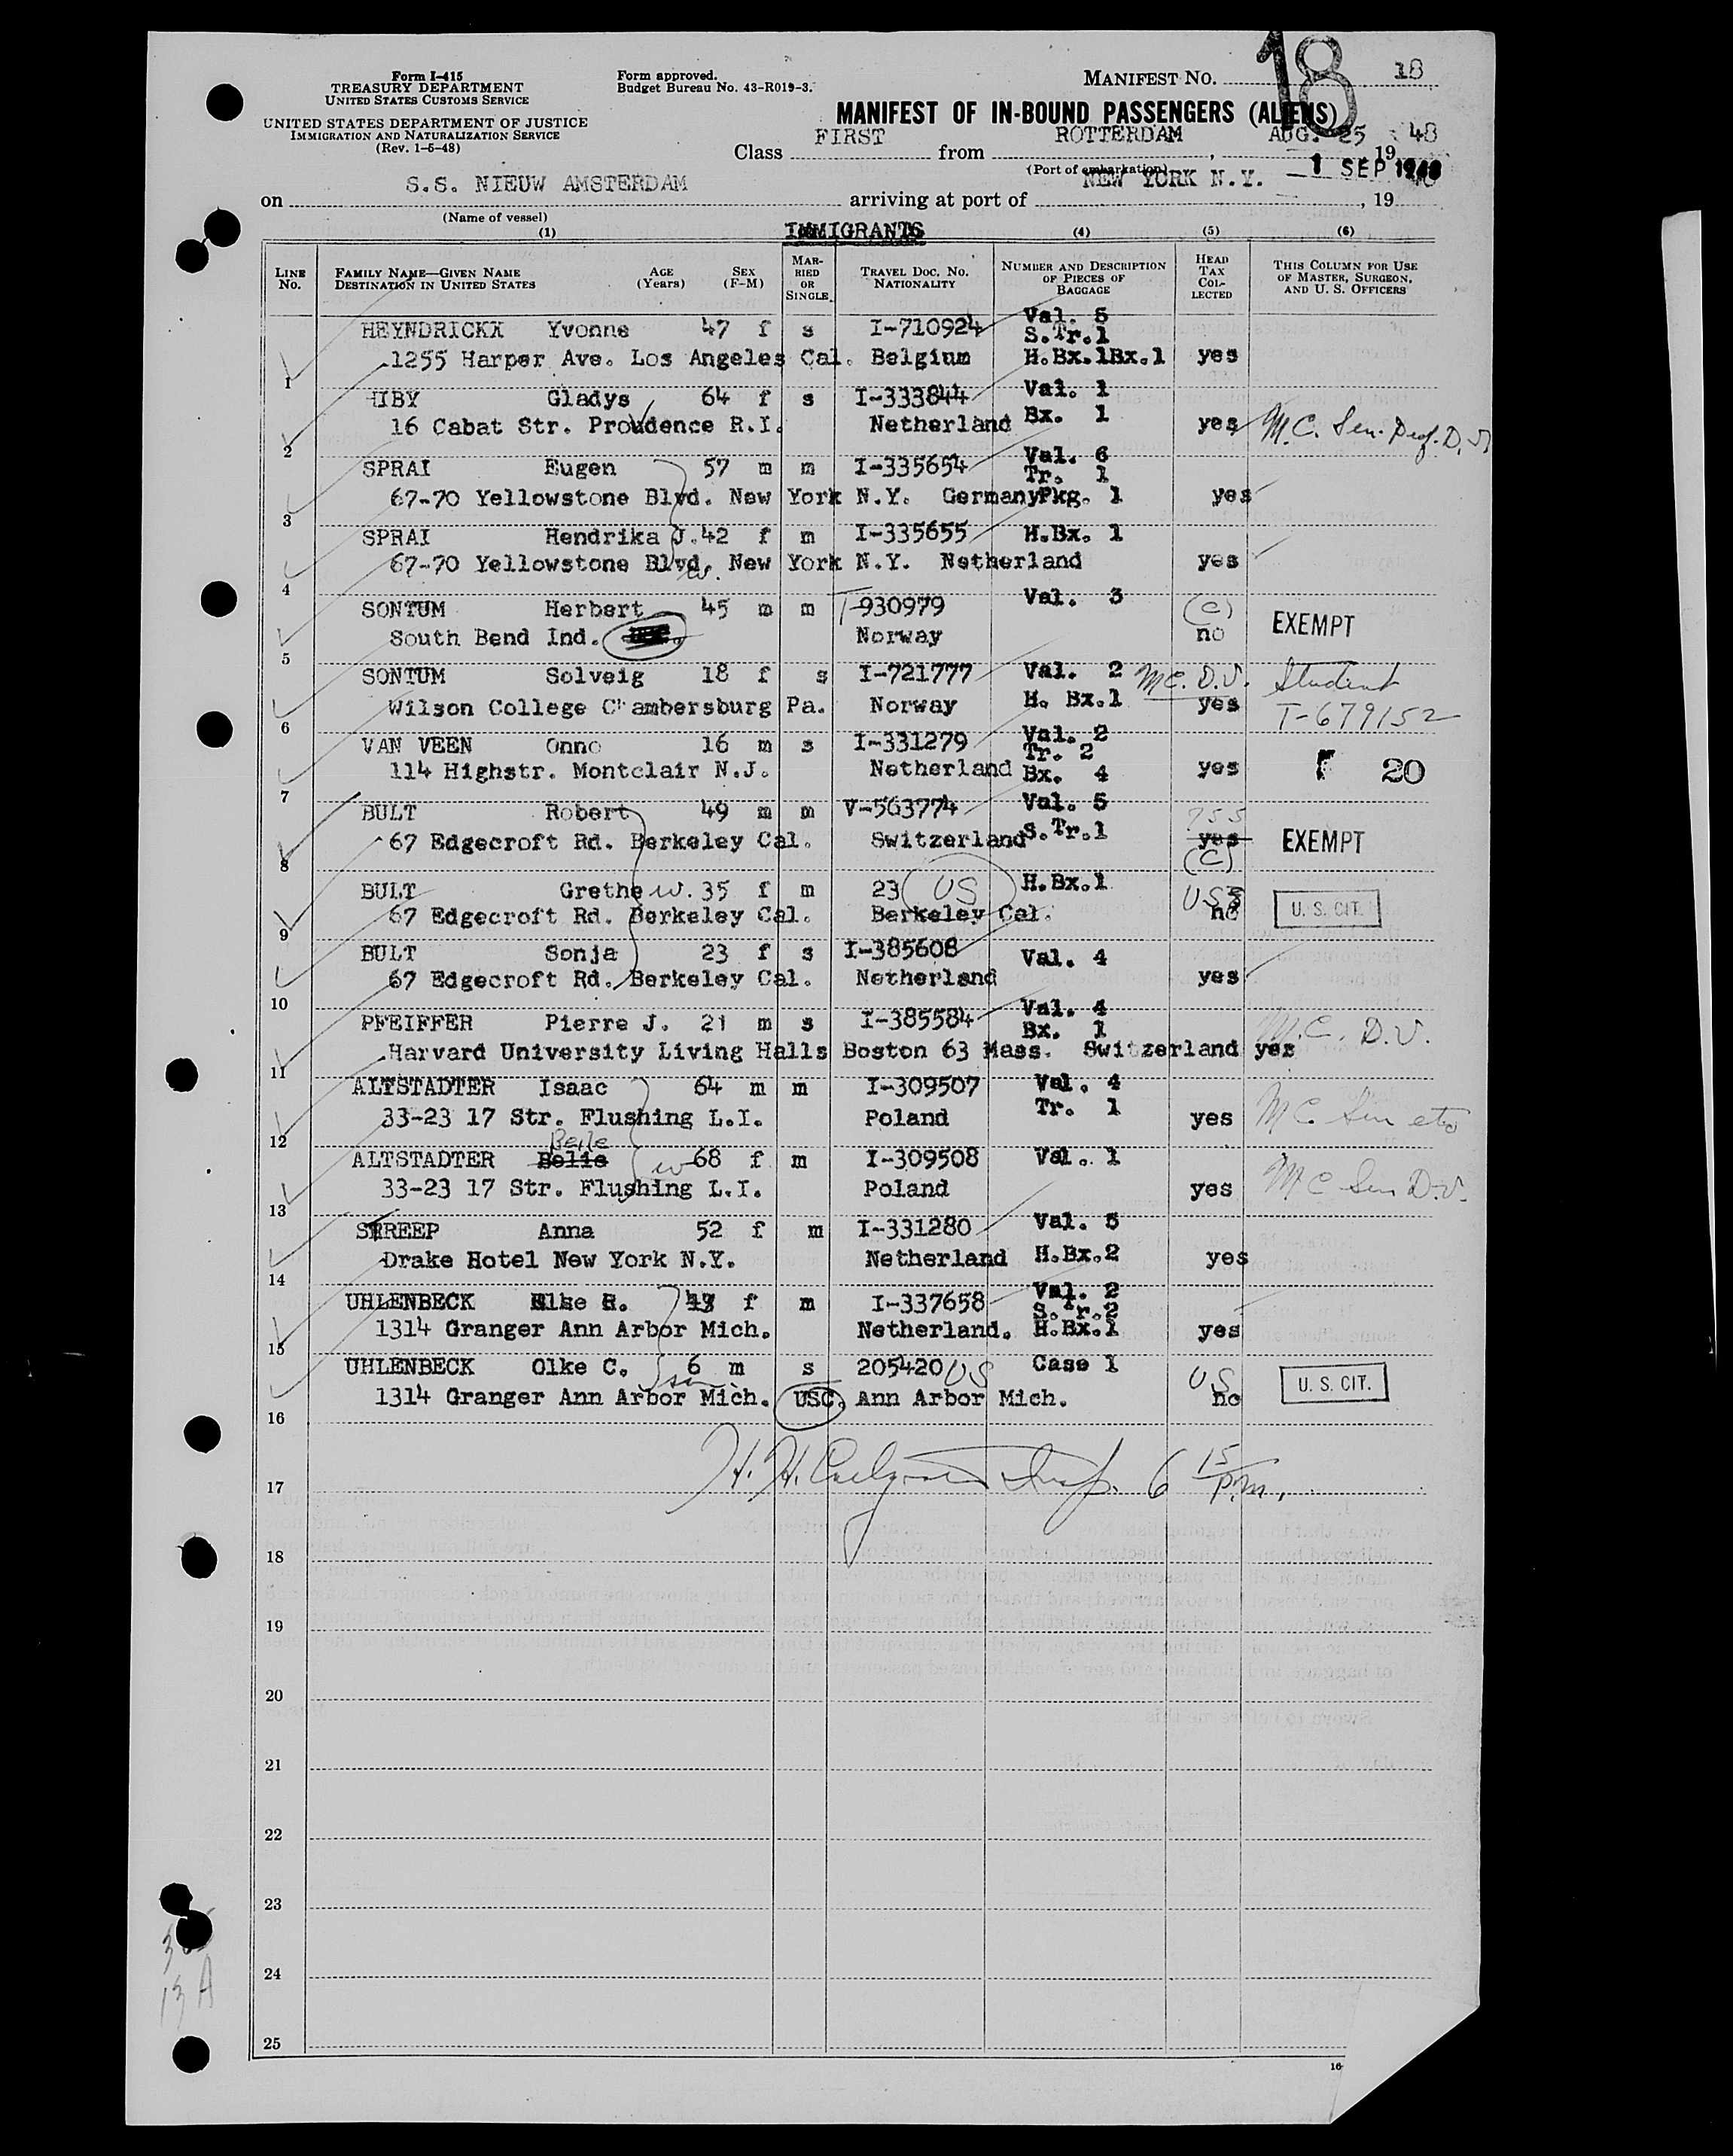 Form I-415
TREASURY DEPARTMENT
UNITED STATES CUSTOMS SERVICE
UNITED STATES DEPARTMENT OF JUSTICE
IMMIGRATION AND NATURALIZATION SERVICE
(Rev. 1-5-48)
Form approved.
Budget Bureau No. 43-R019-3.
MANIFEST NO. 18
18
MANIFEST OF IN-BOUND PASSENGERS (ALIENS)
Class FIRST from ROTTERDAM, AUG. 25, 1948
(Port of embarkation)
1 SEP 1948
on S.S. NIEUW AMSTERDAM arriving at port of NEW YORK N.Y., 19
(Name of vessel)
(1) IMMIGRANTS (4) (5) (6)
LINE No. FAMILY NAME—GIVEN NAME DESTINATION IN UNITED STATES AGE (Years) SEX (F-M) MARRIED OR SINGLE TRAVEL DOC. NO. NATIONALITY NUMBER AND DESCRIPTION OF PIECES OF BAGGAGE HEAD TAX COLLECTED THIS COLUMN FOR USE OF MASTER, SURGEON, AND U. S. OFFICERS
HEYNDRICKX Yvonne 47 f s I-710924 Val. 5
S.Tr.1
1255 Harper Ave. Los Angeles Cal. Belgium H.Bx.1Bx.1 yes
1
HIBY Gladys 64 f s I-333844 Val. 1
16 Cabat Str. Proudence R.I. Netherland Bx. 1 yes M.C. Sen. D.V.
2
SPRAI Eugen 57 m m I-335654 Val. 6
Tr. 1
67-70 Yellowstone Blvd. New York N.Y. Germany Pkg. 1 yes
3
SPRAI Hendrika J. 42 f m I-335655 H.Bx. 1
67-70 Yellowstone Blvd. New York N.Y. Netherland yes
w.
4
SONTUM Herbert 45 m m T-930979 Val. 3 (C)
South Bend Ind. Norway no EXEMPT
5
SONTUM Solveig 18 f s I-721777 Val. 2 MC. D.V. Student
Wilson College Chambersburg Pa. Norway H. Bx.1 yes T-679152
6
VAN VEEN Onno 16 m s I-331279 Val. 2
Tr. 2
114 Highstr. Montclair N.J. Netherland Bx. 4 yes 20
7
BULT Robert 49 m m V-563774 Val. 5
67 Edgecroft Rd. Berkeley Cal. Switzerland S.Tr.1 yes EXEMPT
(C)
8
BULT Grethe w. 35 f m 23 (US) H.Bx.1 US
67 Edgecroft Rd. Berkeley Cal. Berkeley Cal. no U. S. CIT.
9
BULT Sonja 23 f s I-385608 Val. 4
67 Edgecroft Rd. Berkeley Cal. Netherland yes
10
PFEIFFER Pierre J. 21 m s I-385584 Val. 4
Bx. 1 M.C. D.V.
Harvard University Living Halls Boston 63 Mass. Switzerland yes
11
ALTSTADTER Isaac 64 m m I-309507 Val. 4
33-23 17 Str. Flushing L.I. Poland Tr. 1 yes MC. Sen
12
Beile
ALTSTADTER Belie w 68 f m I-309508 Val. 1
33-23 17 Str. Flushing L.I. Poland yes MC Sen D.V.
13
STREEP Anna 52 f m I-331280 Val. 5
Drake Hotel New York N.Y. Netherland H.Bx.2 yes
14
UHLENBECK Else 43 f m I-337658 Val. 2
S.Tr.2
1314 Granger Ann Arbor Mich. Netherland. H.Bx.1 yes
15
UHLENBECK Olke C. 6 m s 205420 US Case 1 US
son
1314 Granger Ann Arbor Mich. USC. Ann Arbor Mich. no U. S. CIT.
16
H. H. Insp. 6 15 p.m.
17
18
19
20
21
22
23
24
25
13 A
16